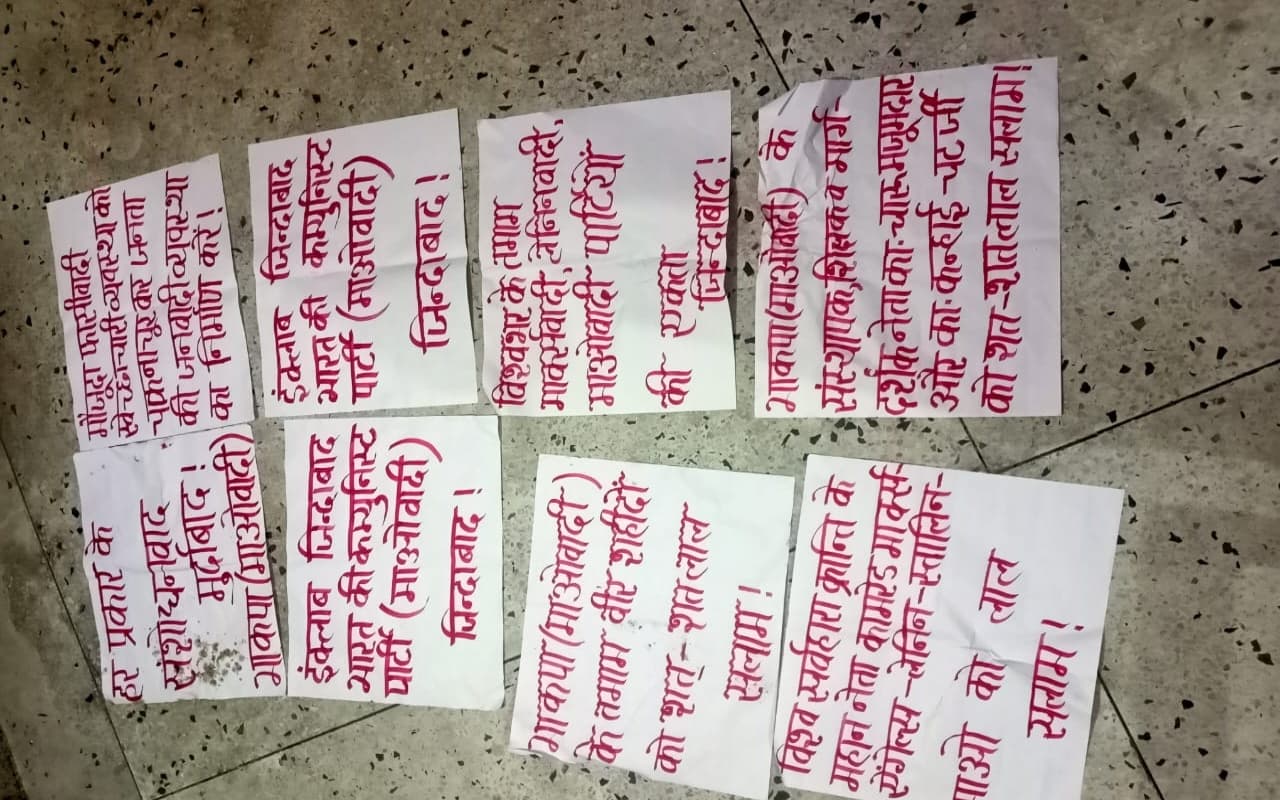 मौजूदा फासीवादी
स्वेच्छाचारी व्यवस्था को
चकनाचूर कर जनता
की जनवादी व्यवस्था
का निर्माण करें!
इंक्लाब जिन्दाबाद
भारत की कम्युनिस्ट
पार्टी (माओवादी)
जिन्दाबाद!
विश्वभर के तमाम
मार्क्सवादी, लेनिनवादी,
माओवादी पार्टियों
की एकता
जिन्दाबाद!
भाकपा(माओवादी) के
संस्थापक,शिक्षक व मार्ग-
दर्शक नेता का॰ चारू मजूमदार
और का॰ कन्हाई चटर्जी
को शत-शत लाल सलाम!
हर प्रकार के
संशोधनवाद
मुर्दाबाद!
भाकपा (माओवादी)
इंक्लाब जिन्दाबाद
भारत की कम्युनिस्ट
पार्टी (माओवादी)
जिन्दाबाद!
भाकपा(माओवादी)
के तमाम वीर शहीदों
को शत्-शत् लाल
सलाम!
विश्व सर्वहारा क्रान्ति के
महान नेता कामरेड मार्क्स-
एंगेल्स-लेनिन-स्तालिन-
माओ को लाल
सलाम!